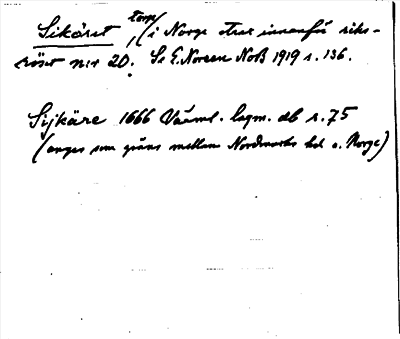 Sikäret torp, (i Norge strax innanför riks-
röset n:r 20. Se E. Noreen NoB 1919 s. 136.
Sijkäre 1666 Värml. lagm. db s. 75
(anges som gräns mellan Nordmarks hd o. Norge)